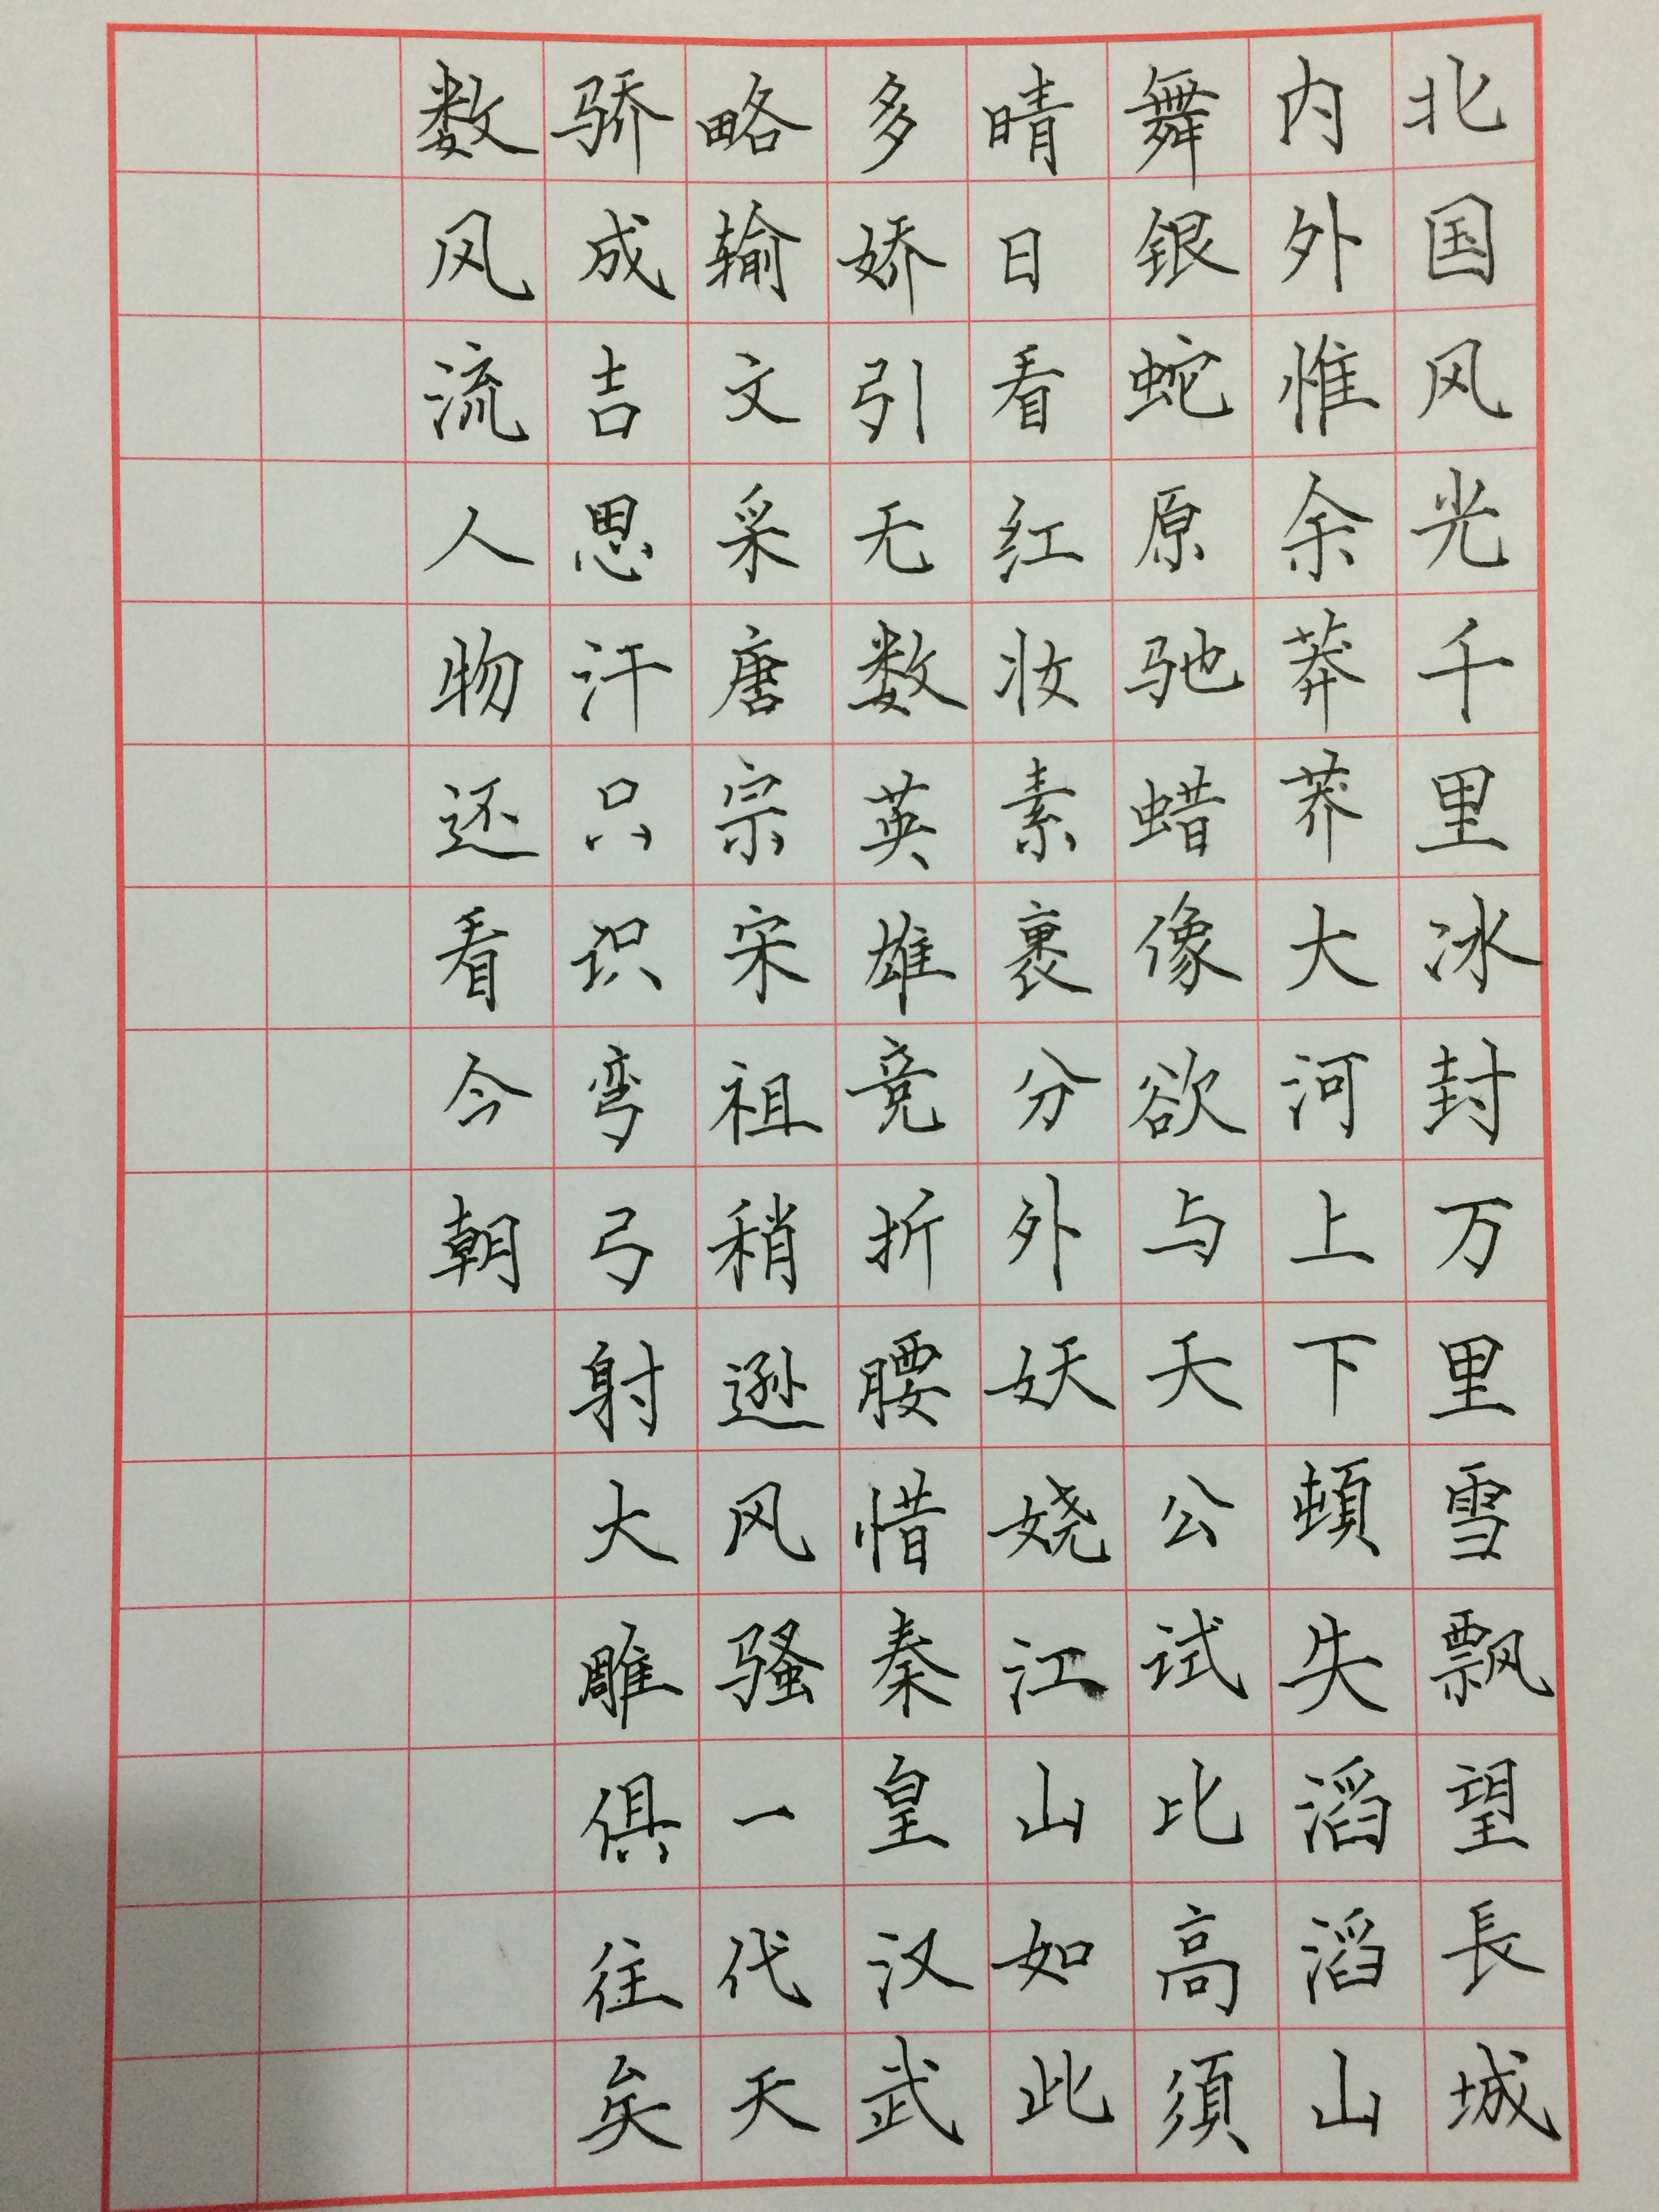 北国风光千里冰封万里雪飘望長城
内外惟余莽莽大河上下頓失滔滔山
舞银蛇原驰蜡像欲与天公试比高須
晴日看红妆素裹分外妖娆江山如此
多娇引无数英雄竞折腰惜秦皇汉武
略输文采唐宗宋祖稍逊风骚一代天
骄成吉思汗只识弯弓射大雕俱往矣
数风流人物还看今朝